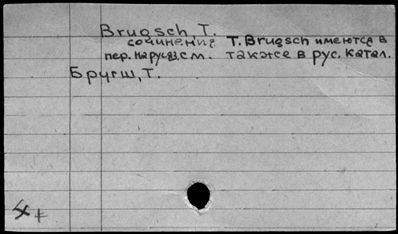 Brugsch, T.
сочинения T. Brugsch имеются в
пер. на русяз. см. также в рус. катал.
Бругш, Т.